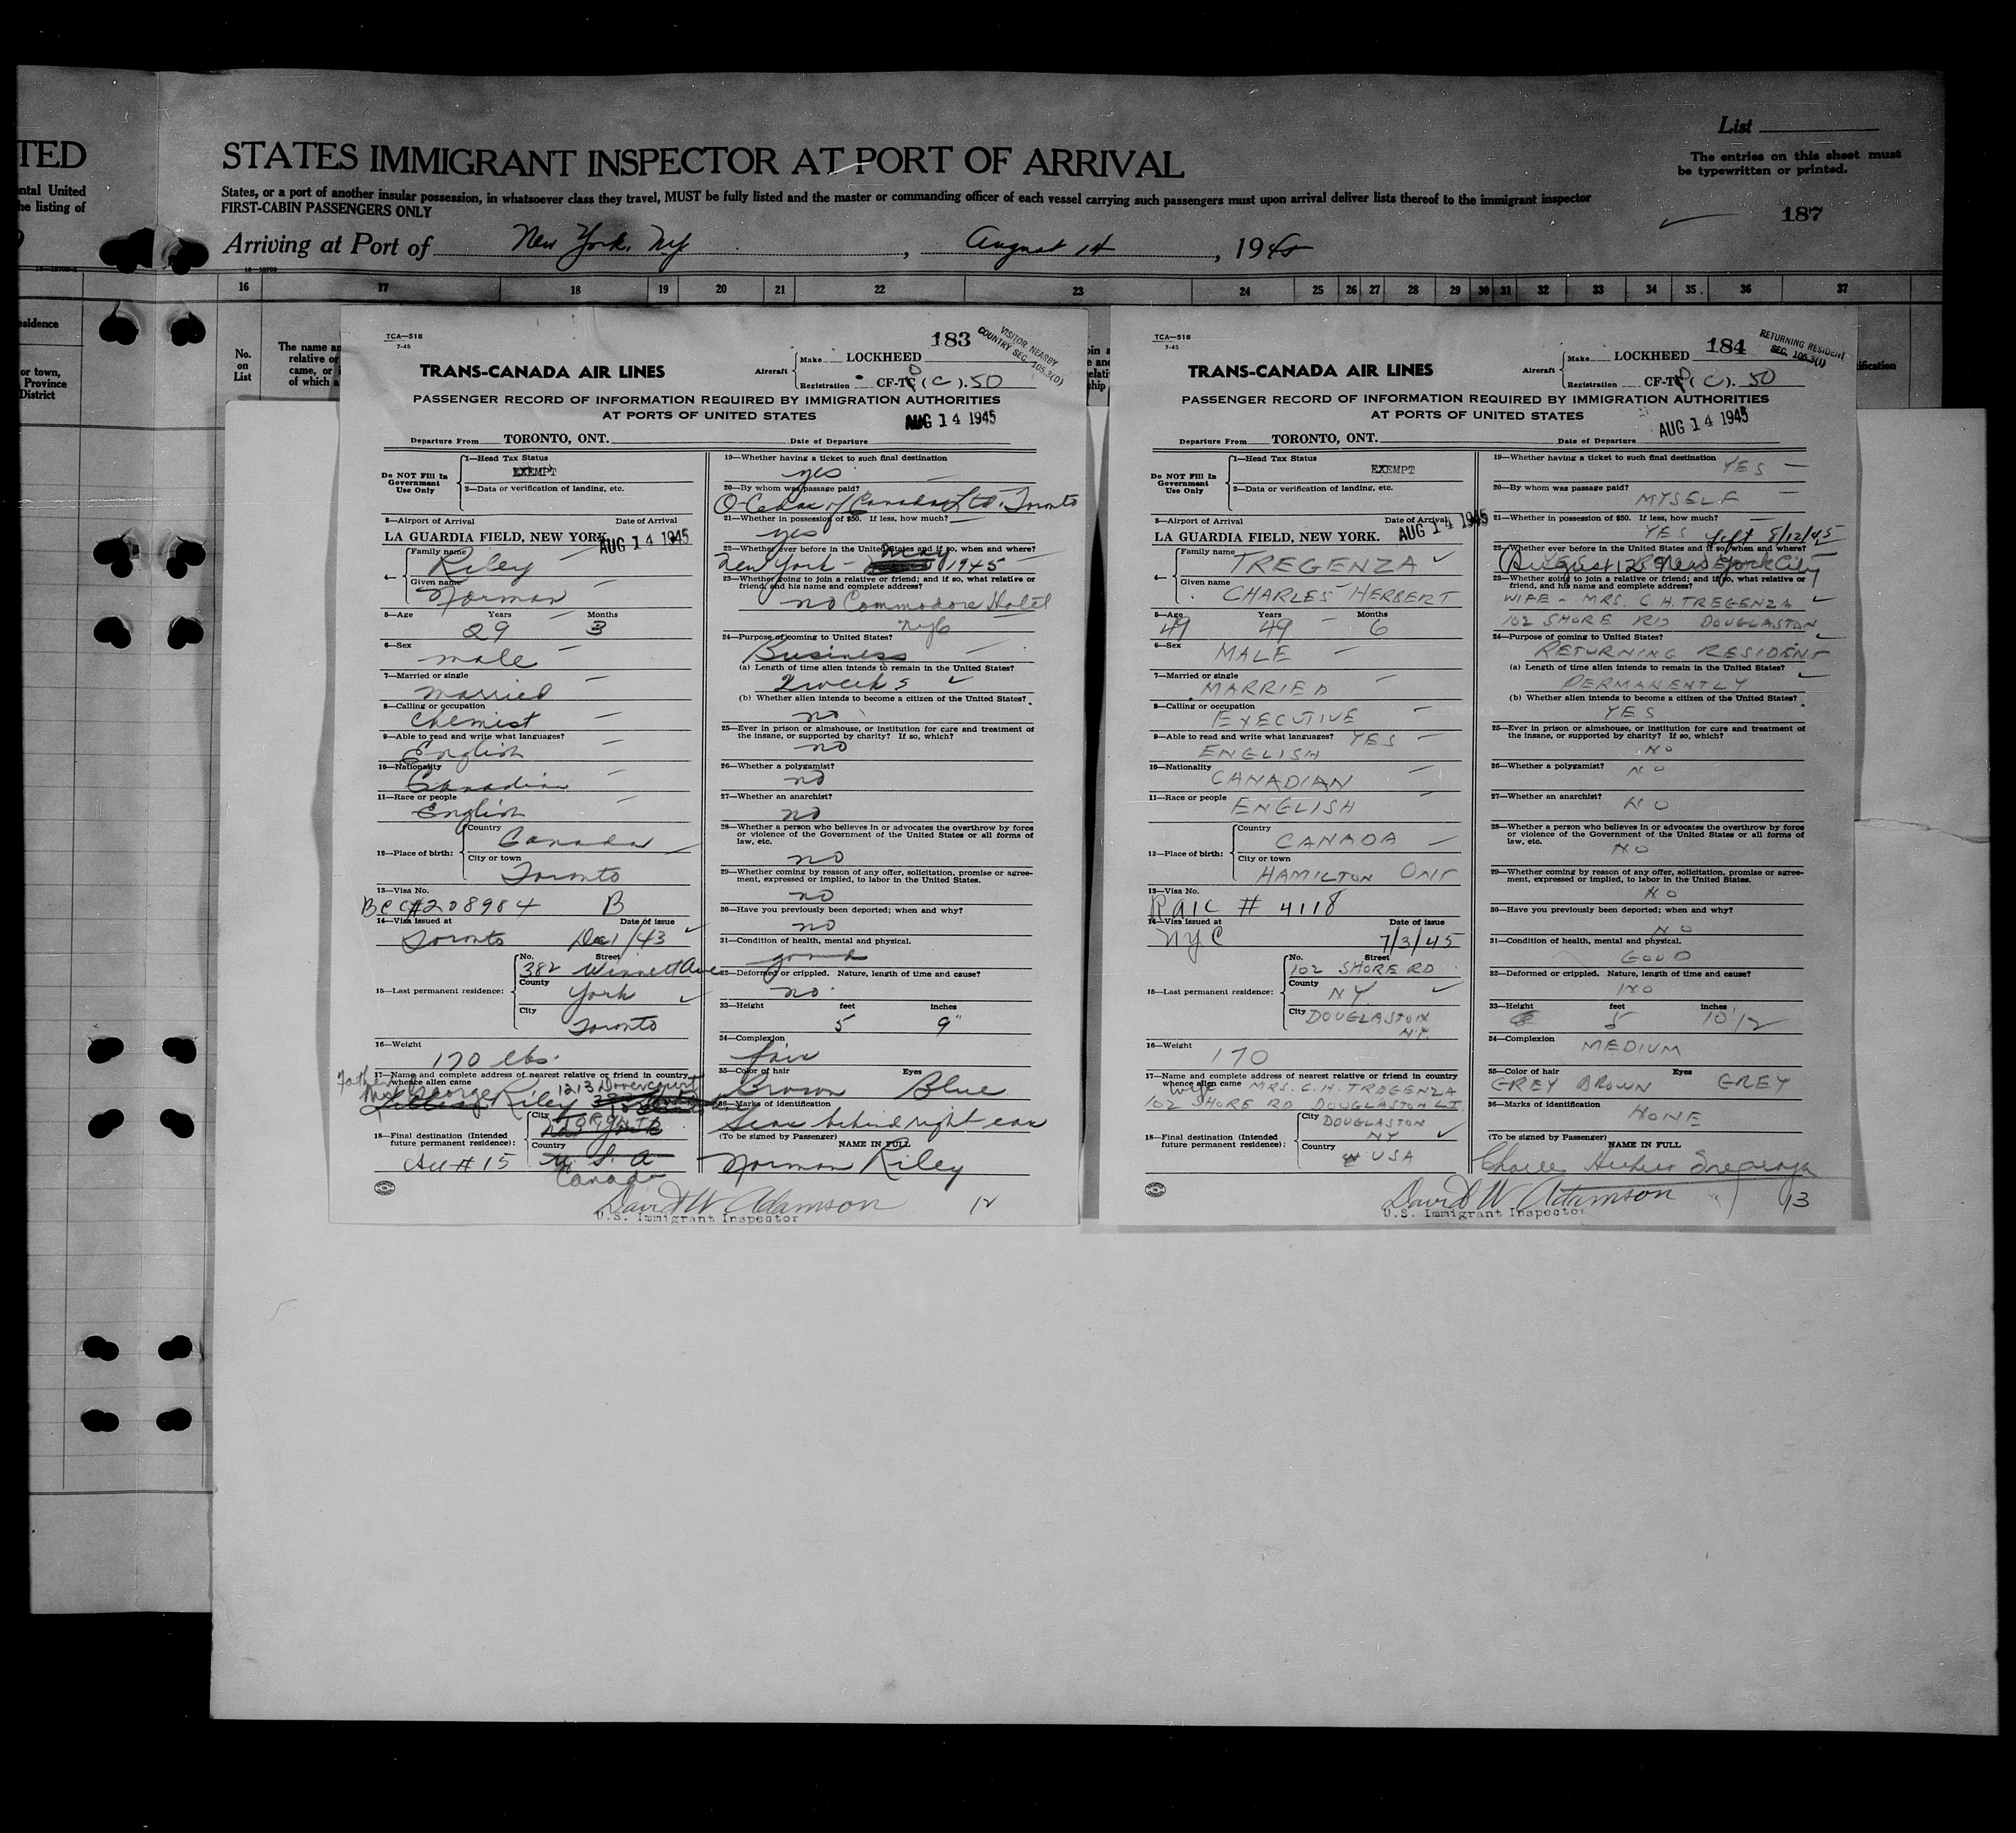 TED
ntal United
he listing of
STATES IMMIGRANT INSPECTOR AT PORT OF ARRIVAL
List
The entries on this sheet must
be typewritten or printed.
States, or a port of another insular possession, in whatsoever class they travel, MUST be fully listed and the master or commanding officer of each vessel carrying such passengers must upon arrival deliver lists thereof to the immigrant inspector
FIRST-CABIN PASSENGERS ONLY
187
Arriving at Port of New York, NY, August 14, 1945
16 17 18 19 20 21 22 23 24 25 26 27 28 29 30 31 32 33 34 35 36 37
sidence
or town,
Province
District
No.
on
List
The name an
relative or
came, or i
of which a
TCA—518
7-45
183
VISITOR NEARBY
COUNTRY SEC. 105.3(D)
TRANS-CANADA AIR LINES
Aircraft
Make LOCKHEED
Registration CF-T (C). 50
PASSENGER RECORD OF INFORMATION REQUIRED BY IMMIGRATION AUTHORITIES
AT PORTS OF UNITED STATES
AUG 14 1945
Departure From TORONTO, ONT. Date of Departure
Do NOT Fill In
Government
Use Only
1—Head Tax Status
EXEMPT
2—Data or verification of landing, etc.
3—Airport of Arrival Date of Arrival
LA GUARDIA FIELD, NEW YORK. AUG 14 1945
4—
Family name
Riley
Given name
Norman
5—Age Years Months
29 3
6—Sex
male
7—Married or single
married
8—Calling or occupation
chemist
9—Able to read and write what languages?
English
10—Nationality
Canadian
11—Race or people
English
12—Place of birth:
Country
Canada
City or town
Toronto
13—Visa No.
BCC#208984 B
14—Visa issued at Date of issue
Toronto Dec 1/43
15—Last permanent residence:
No. Street
382 Winnett Ave
County
York
City
Toronto
16—Weight
170 lbs.
17—Name and complete address of nearest relative or friend in country
whence alien came
Father
George Riley 1213 Dovercourt
18—Final destination (Intended
future permanent residence):
City
TORONTO
New York
Country
U. S. A
Canada
All # 15
19—Whether having a ticket to such final destination
yes
20—By whom was passage paid?
O-Cedar of Canada Ltd. Toronto
21—Whether in possession of $50. If less, how much?
yes
22—Whether ever before in the United States and if so, when and where?
New York - May 1945
23—Whether going to join a relative or friend; and if so, what relative or
friend, and his name and complete address?
no Commodore Hotel
NYC
24—Purpose of coming to United States?
Business
(a) Length of time alien intends to remain in the United States?
2 weeks
(b) Whether alien intends to become a citizen of the United States?
no
25—Ever in prison or almshouse, or institution for care and treatment of
the insane, or supported by charity? If so, which?
no
26—Whether a polygamist?
no
27—Whether an anarchist?
no
28—Whether a person who believes in or advocates the overthrow by force
or violence of the Government of the United States or all forms of
law, etc.
no
29—Whether coming by reason of any offer, solicitation, promise or agree-
ment, expressed or implied, to labor in the United States.
no
30—Have you previously been deported; when and why?
no
31—Condition of health, mental and physical.
good
32—Deformed or crippled. Nature, length of time and cause?
no
33—Height feet inches
5 9"
34—Complexion
fair
35—Color of hair Eyes
Brown Blue
36—Marks of identification
Scar behind right ear
(To be signed by Passenger)
NAME IN FULL
Norman Riley
David W. Adamson 12
U.S. Immigrant Inspector
TCA—518
7-45
184
RETURNING RESIDENT
SEC. 105.3(I)
TRANS-CANADA AIR LINES
Aircraft
Make LOCKHEED
Registration CF-T (C). 50
PASSENGER RECORD OF INFORMATION REQUIRED BY IMMIGRATION AUTHORITIES
AT PORTS OF UNITED STATES
AUG 14 1945
Departure From TORONTO, ONT. Date of Departure
Do NOT Fill In
Government
Use Only
1—Head Tax Status
EXEMPT
2—Data or verification of landing, etc.
3—Airport of Arrival Date of Arrival
LA GUARDIA FIELD, NEW YORK. AUG 14 1945
4—
Family name
TREGENZA
Given name
CHARLES HERBERT
5—Age Years Months
49 49 6
6—Sex
MALE
7—Married or single
MARRIED
8—Calling or occupation
EXECUTIVE
9—Able to read and write what languages? YES
ENGLISH
10—Nationality
CANADIAN
11—Race or people
ENGLISH
12—Place of birth:
Country
CANADA
City or town
HAMILTON ONT
13—Visa No.
RAIC # 4118
14—Visa issued at Date of issue
NYC 7/3/45
15—Last permanent residence:
No. Street
102 SHORE RD
County
NY.
City
DOUGLASTON
NY.
16—Weight
170
17—Name and complete address of nearest relative or friend in country
whence alien came MRS. C. H. TREGENZA
wife
102 SHORE RD DOUGLASTON LI
18—Final destination (Intended
future permanent residence):
City
DOUGLASTON
NY
Country
USA
19—Whether having a ticket to such final destination
YES
20—By whom was passage paid?
MYSELF
21—Whether in possession of $50. If less, how much?
YES left 8/12/45
22—Whether ever before in the United States and if so, when and where?
August 12 New York City
23—Whether going to join a relative or friend; and if so, what relative or
friend, and his name and complete address?
WIFE - MRS. C. H. TREGENZA
102 SHORE RD DOUGLASTON
24—Purpose of coming to United States?
RETURNING RESIDENT
(a) Length of time alien intends to remain in the United States?
PERMANENTLY
(b) Whether alien intends to become a citizen of the United States?
YES
25—Ever in prison or almshouse, or institution for care and treatment of
the insane, or supported by charity? If so, which?
NO
26—Whether a polygamist?
NO
27—Whether an anarchist?
NO
28—Whether a person who believes in or advocates the overthrow by force
or violence of the Government of the United States or all forms of
law, etc.
NO
29—Whether coming by reason of any offer, solicitation, promise or agree-
ment, expressed or implied, to labor in the United States.
NO
30—Have you previously been deported; when and why?
NO
31—Condition of health, mental and physical.
GOOD
32—Deformed or crippled. Nature, length of time and cause?
NO
33—Height feet inches
5 10 1/2
34—Complexion
MEDIUM
35—Color of hair Eyes
GREY BROWN GREY
36—Marks of identification
NONE
(To be signed by Passenger)
NAME IN FULL
Charles Herbert Tregenza
David W Adamson 13
U.S. Immigrant Inspector